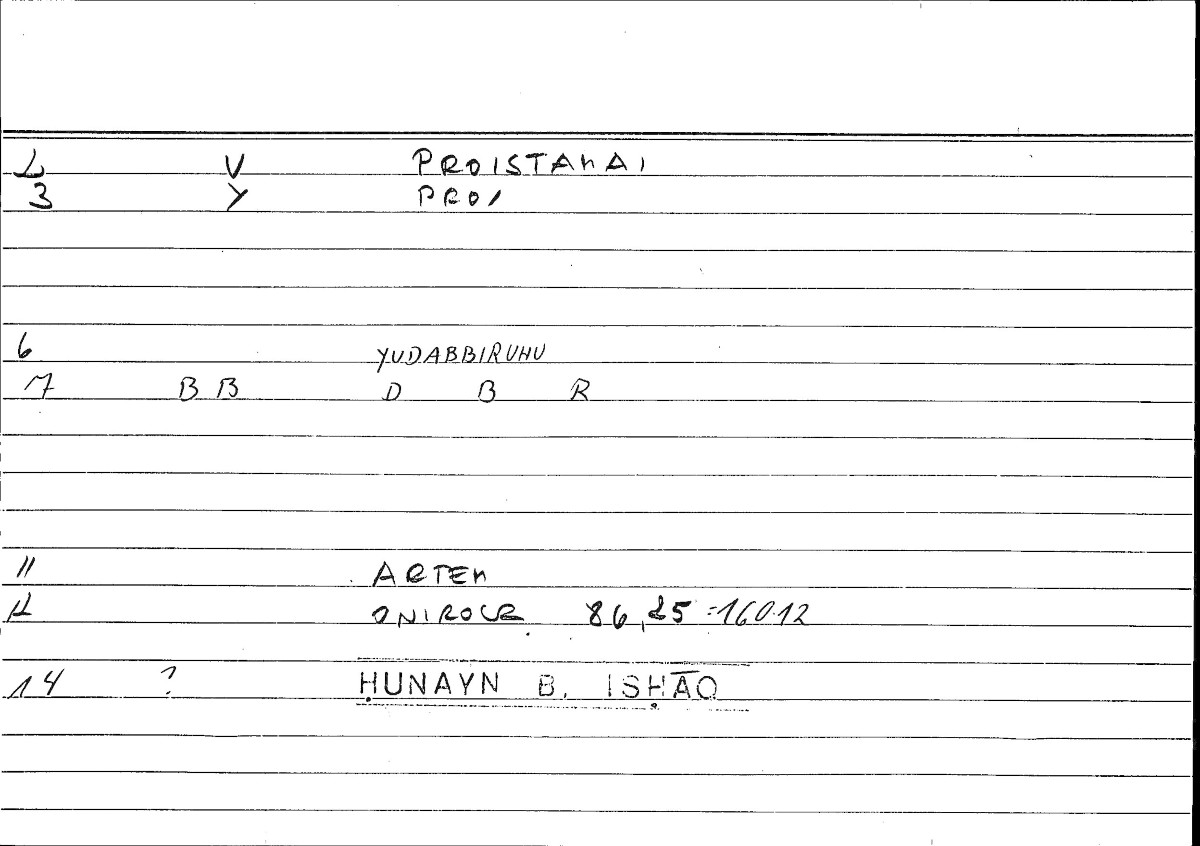 2 V PROISTAMAI
3 Y PROI
6 YUDABBIRUHU
7 B B D B R
11 ARTEM
12 ONIROCR 86,25 = 160.12
14 ? ḤUNAYN B. ISḤĀQ